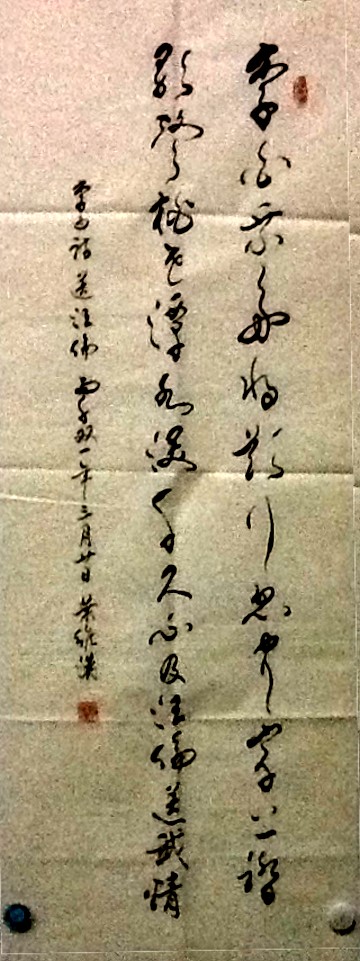 李白乘舟将欲行忽闻岸上踏
歌声桃花潭水深千尺不及汪伦送我情
李白诗送汪伦 一年三月廿日